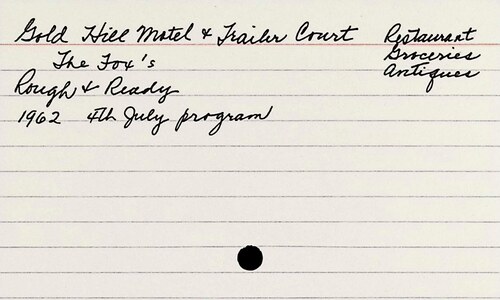 Gold Hill Motel & Trailer Court
Restaurant
Groceries
Antiques
The Fox's
Rough & Ready
1962 4th July program